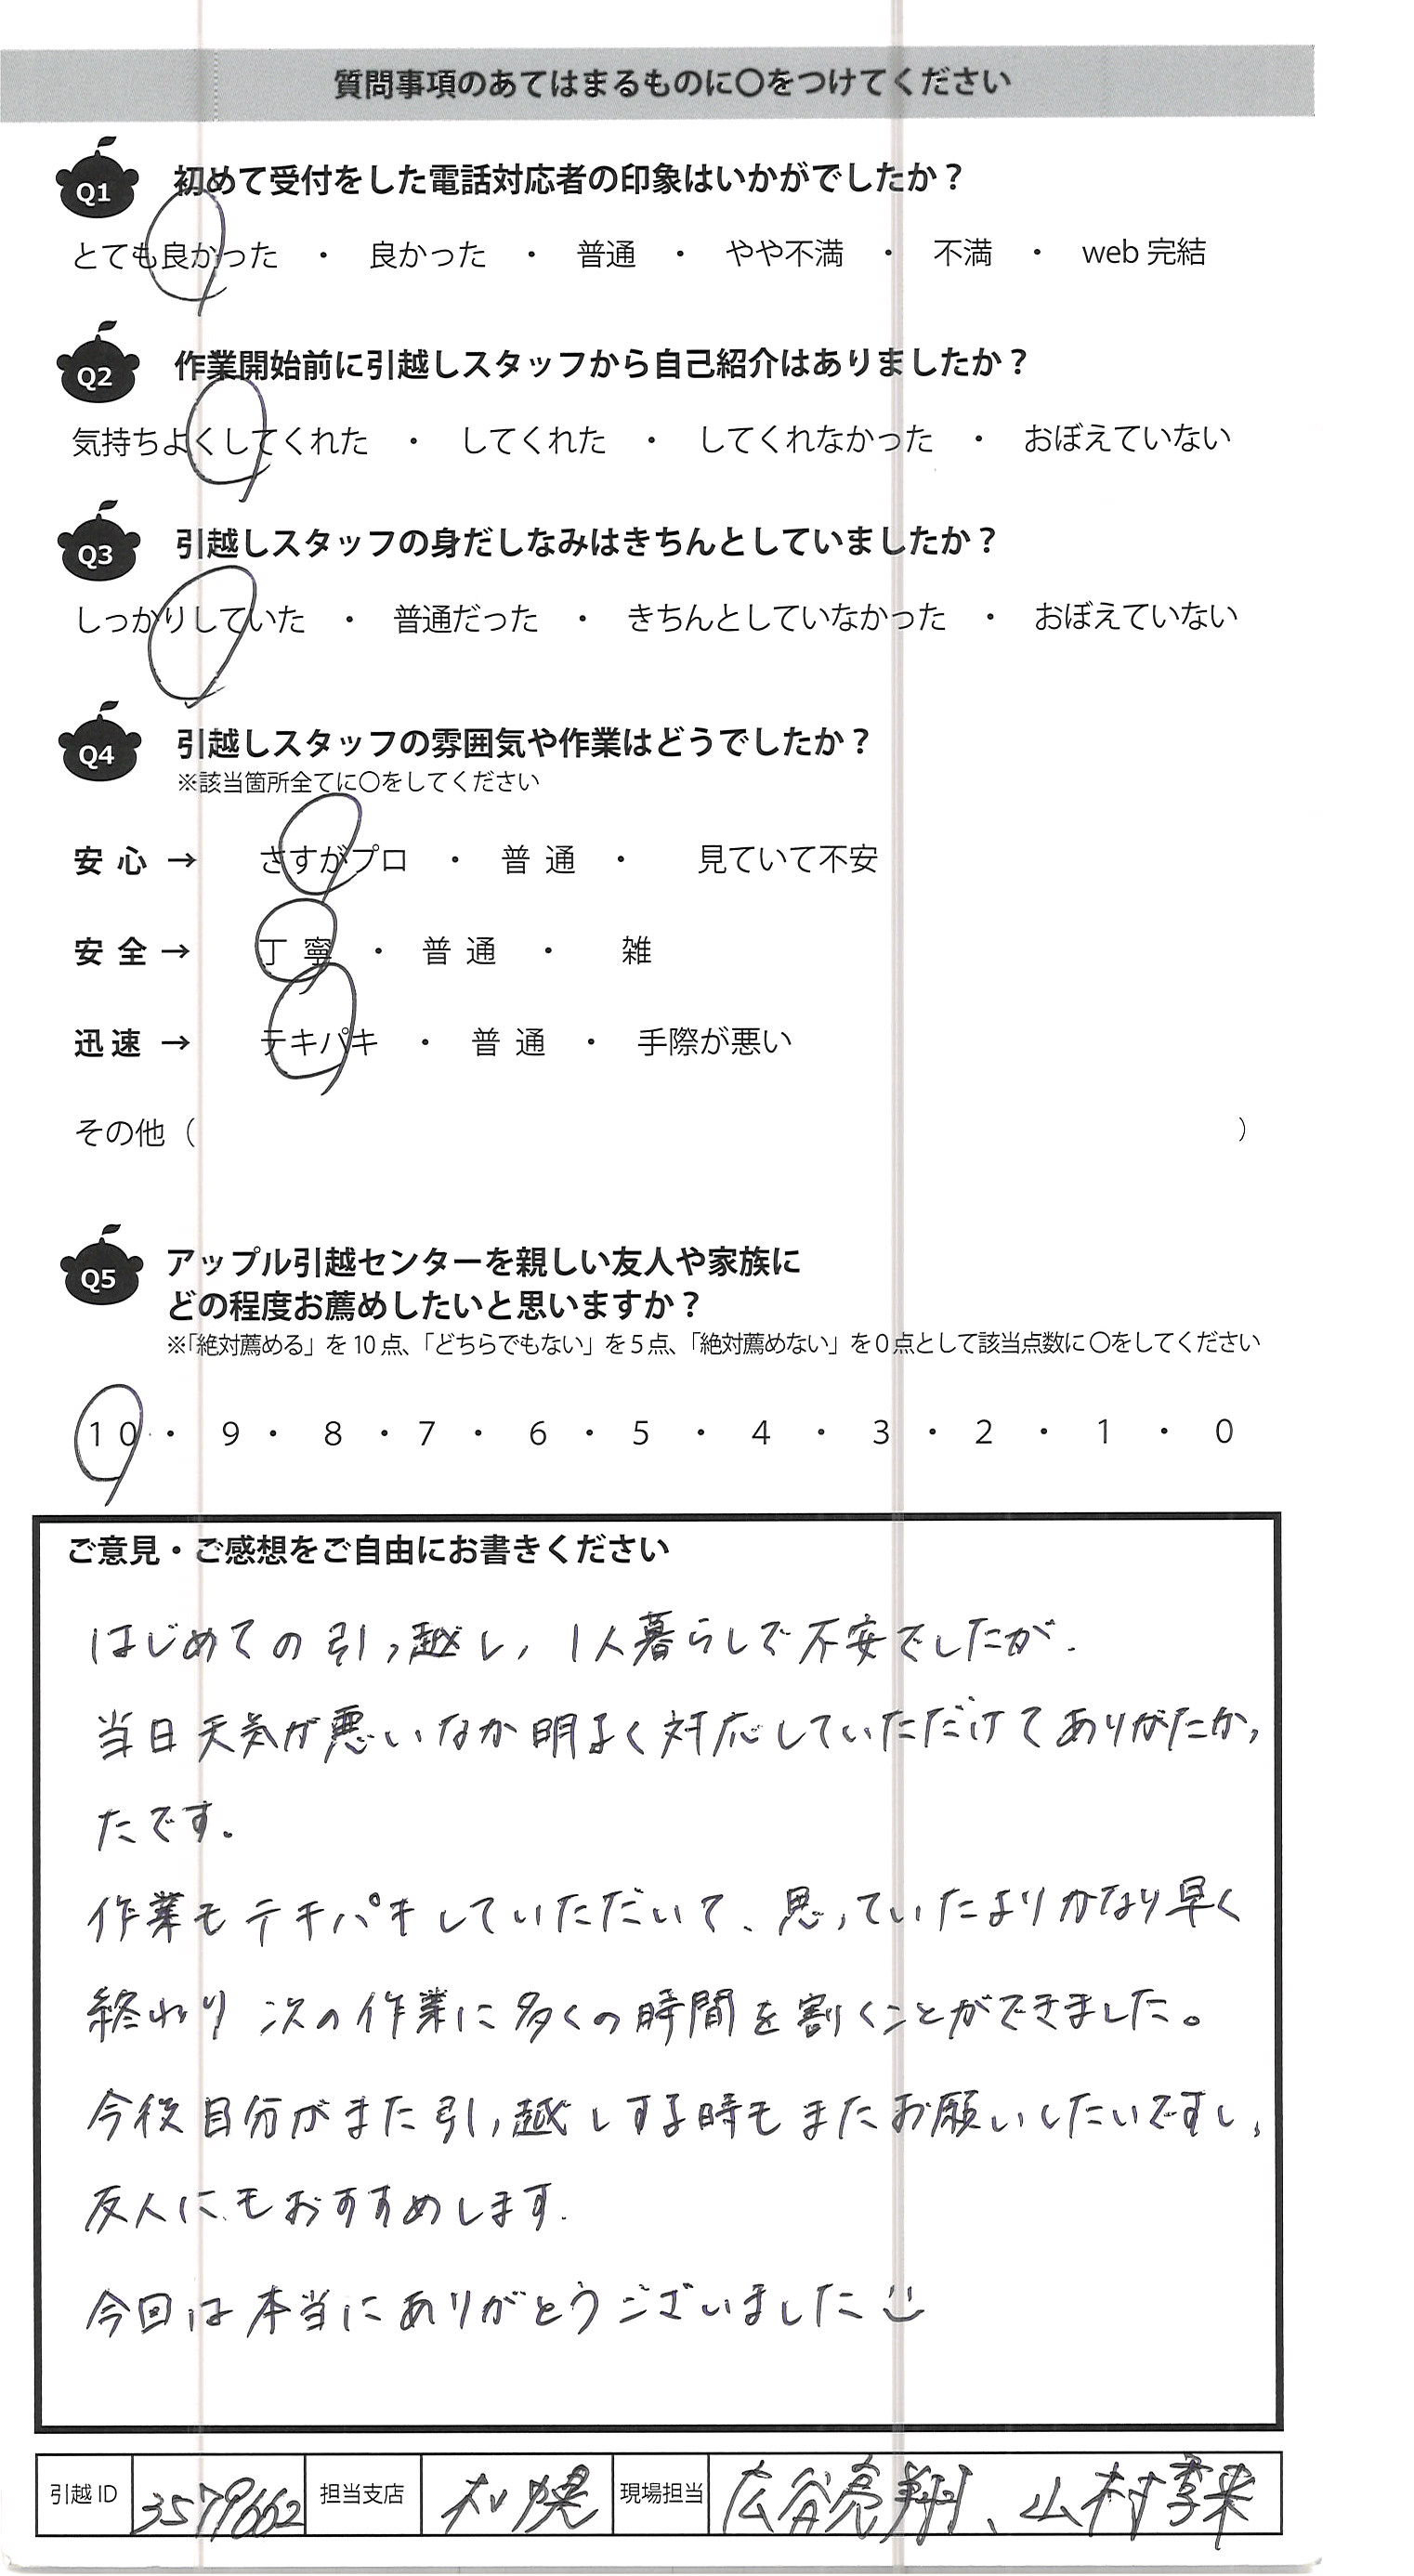 質問事項のあてはまるものに〇をつけてください
Q1 初めて受付をした電話対応者の印象はいかがでしたか？
とても良かった ・ 良かった ・ 普通 ・ やや不満 ・ 不満 ・ web 完結
Q2 作業開始前に引越しスタッフから自己紹介はありましたか？
気持ちよくしてくれた ・ してくれた ・ してくれなかった ・ おぼえていない
Q3 引越しスタッフの身だしなみはきちんとしていましたか？
しっかりしていた ・ 普通だった ・ きちんとしていなかった ・ おぼえていない
Q4 引越しスタッフの雰囲気や作業はどうでしたか？
※該当箇所全てに〇をしてください
安心 → さすがプロ ・ 普通 ・ 見ていて不安
安全 → 丁寧 ・ 普通 ・ 雑
迅速 → テキパキ ・ 普通 ・ 手際が悪い
その他（ ）
Q5 アップル引越センターを親しい友人や家族に
どの程度お薦めしたいと思いますか？
※「絶対薦める」を 10 点、「どちらでもない」を 5 点、「絶対薦めない」を 0 点として該当点数に〇をしてください
10 ・ 9 ・ 8 ・ 7 ・ 6 ・ 5 ・ 4 ・ 3 ・ 2 ・ 1 ・ 0
ご意見・ご感想をご自由にお書きください
はじめての引っ越し、1人暮らしで不安でしたが、
当日天気が悪いなか明るく対応していただけてありがたかっ
たです。
作業もテキパキしていただいて、思っていたよりかなり早く
終わり 次の作業に多くの時間を割くことができました。
今後自分がまた引っ越しする時もまたお願いしたいですし、
友人にもおすすめします.
今回は本当にありがとうございました
引越 ID 3579662 担当支店 札幌 現場担当 広谷亮翔、山村李来